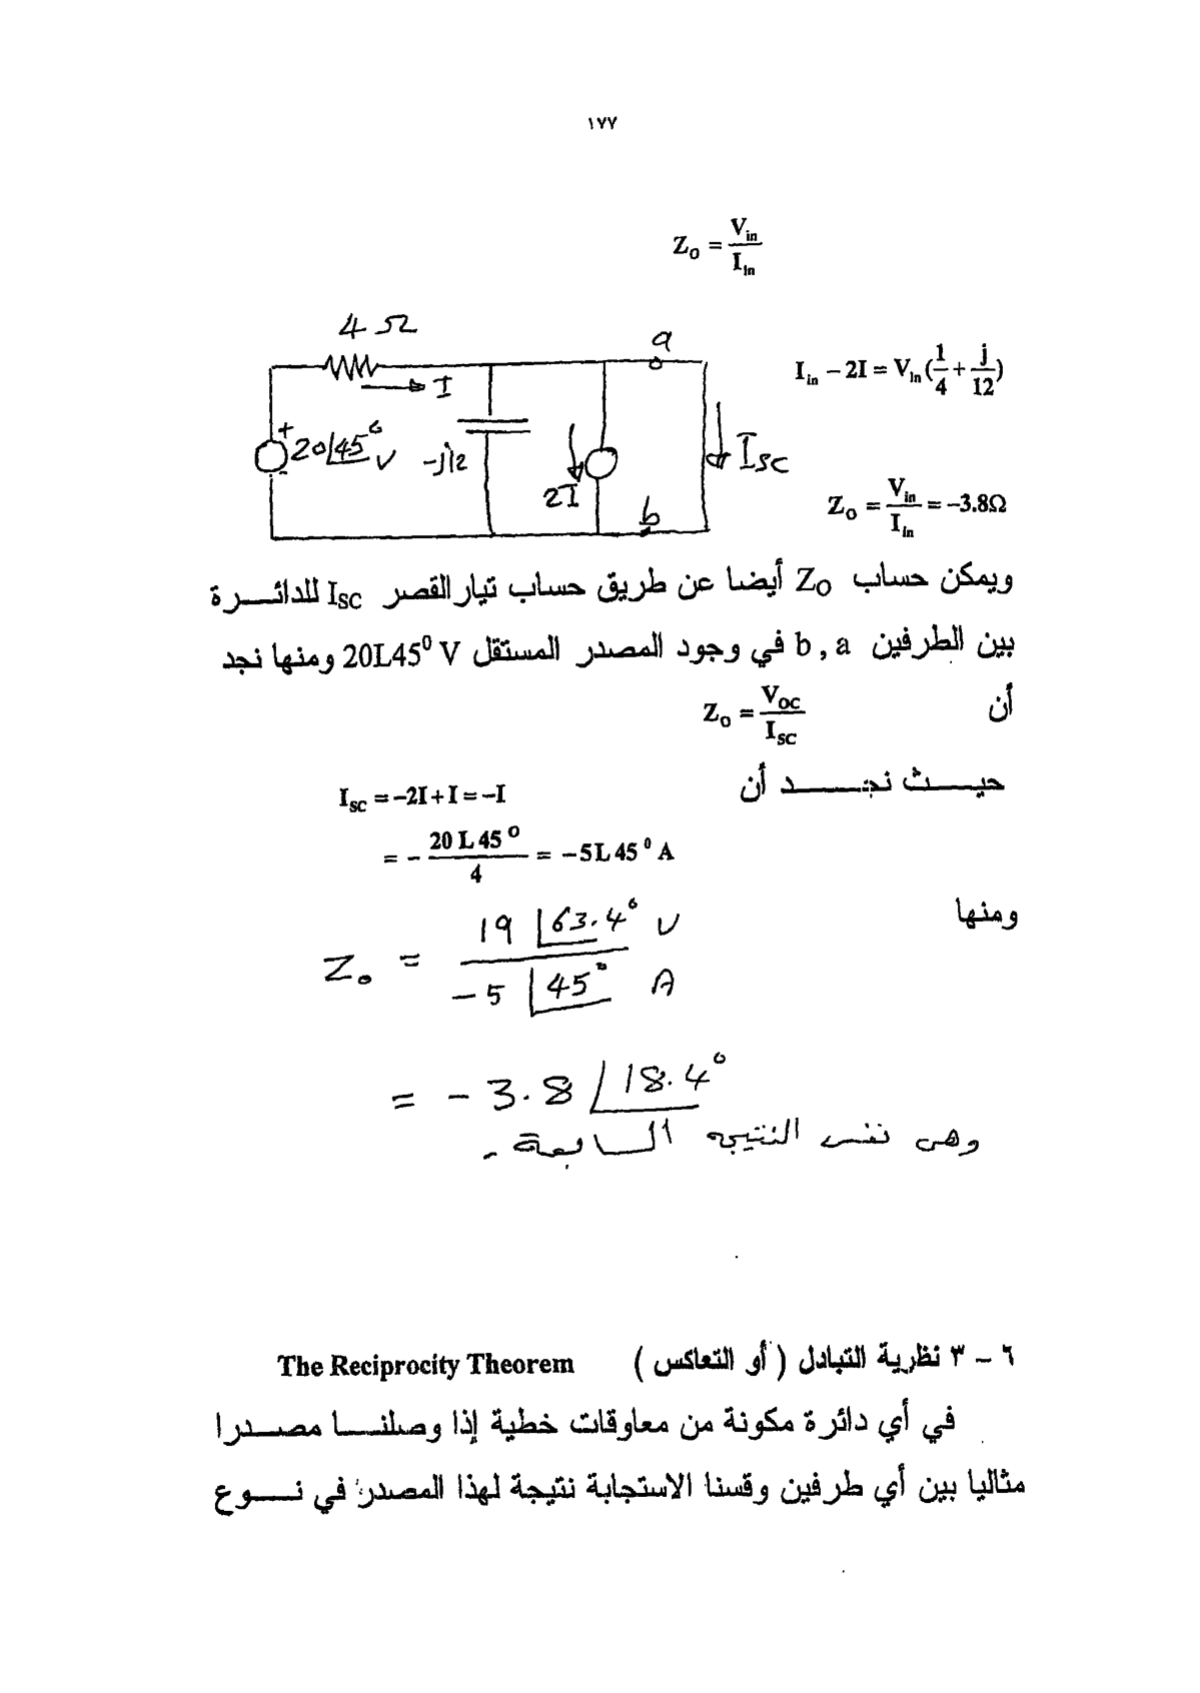 ١٧٧
Z₀ = V_in / I_in
4 Ω
a
I_in − 2I = V_in (1/4 + j/12)
I
+
20∠45° V
-
-j12
2I
I_SC
b
Z₀ = V_in / I_in = −3.8Ω
ويمكن حساب Z₀ أيضا عن طريق حساب تيار القصر I_SC للدائــرة
بين الطرفين b , a في وجود المصدر المستقل 20L45⁰ V ومنها نجد
أن Z₀ = V_OC / I_SC
حيــث نجــد أن I_SC = −2I + I = −I
= − 20 L 45⁰ / 4 = −5L 45⁰ A
ومنها
Z₀ = 19 ∠63.4° V / −5 ∠45° A
= − 3.8 ∠18.4°
وهى نفس النتيجه السابعة .
٦ – ٣ نظرية التبادل ( أو التعاكس ) The Reciprocity Theorem
في أي دائرة مكونة من معاوقات خطية إذا وصلنــا مصــدرا
مثاليا بين أي طرفين وقسنا الاستجابة نتيجة لهذا المصدر في نــوع